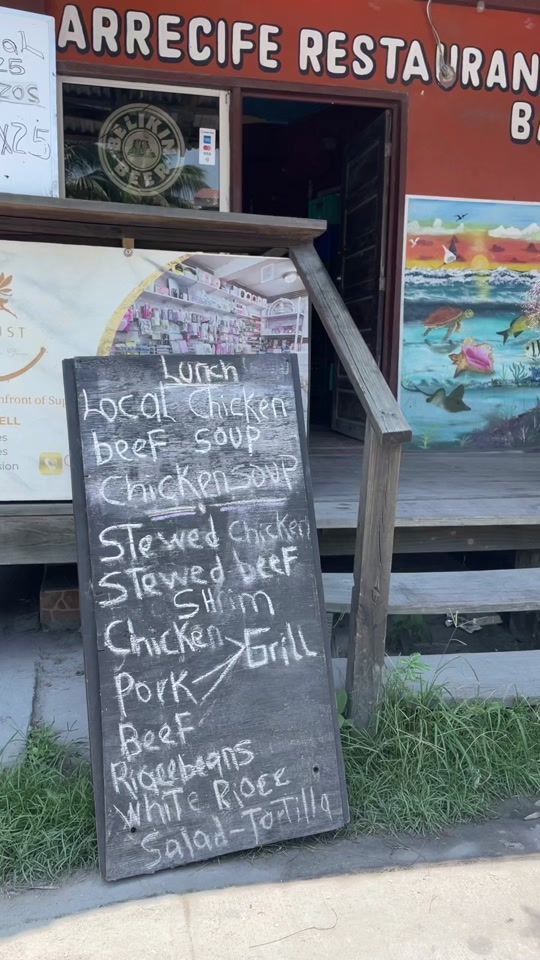 ARRECIFE RESTAURAN
BA
aL
25
ZOS
X25
BELIKIN
BEER
IST
nfront of Sup
ELL
es
es
sion
Lunch
Local Chicken
beef soup
Chicken soup
Stewed Chicken
Stewed beef
Shrim
Chicken Grill
Pork
Beef
Ricebeans
White Rice
Salad-Tortilla